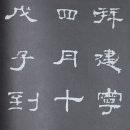 拜建寧
四月十
戊子到